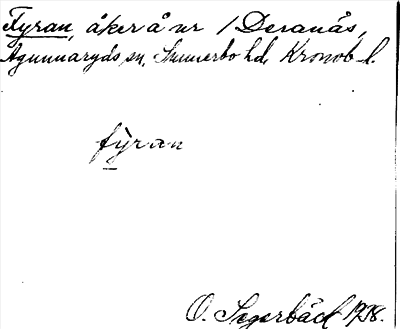 Fyran, åker å nr 1 Deranäs,
Agunnaryds sn, Sunnerbo hd, Kronob. l.
fỳ̱ran
O. Segerbäck 1938.